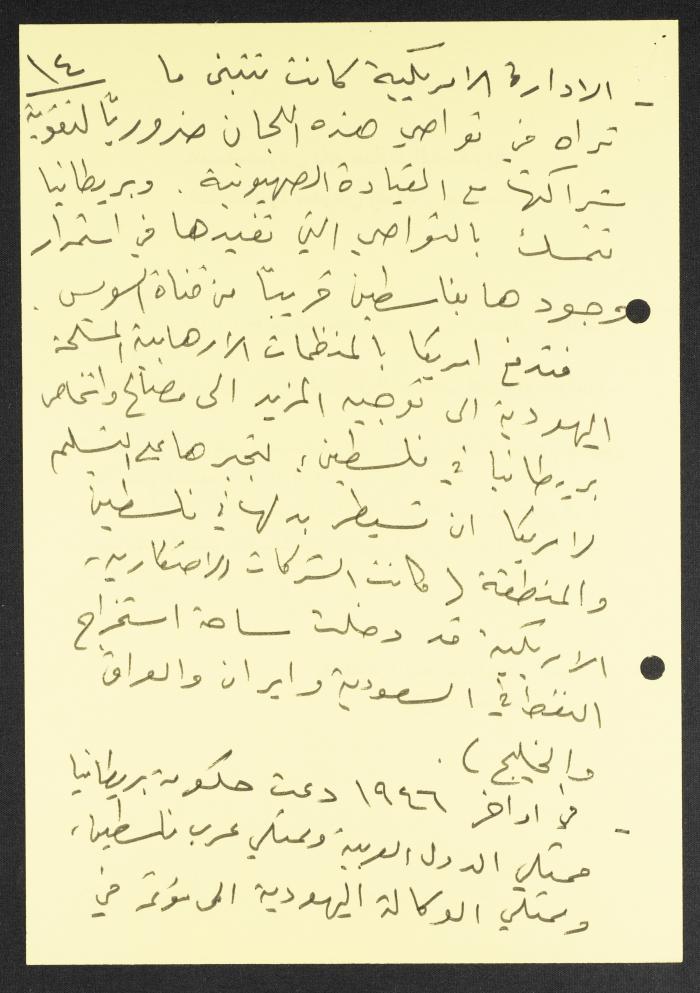 ١٤
- الادارة الامريكية كانت تتبنى ما
تراه في تواصي هذه اللجان ضروريًّا لتقوية
شراكتها مع القيادة الصهيونية. وبريطانيا
تتمسك بالتواصي التي تفيدها في استمرار
وجودها بفلسطين قريبًا من قناة السويس.
فتدفع امريكا بالمنظمات الارهابية المسلحة
اليهودية الى توجيه المزيد الى مصالح واشخاص
بريطانيا في فلسطين، لتجبرها على التسليم
لامريكا ان تسيطر بدلها في فلسطين
والمنطقة (كانت الشركات الاحتكارية
الامريكية قد دخلت ساحة استخراج
النفط في السعودية وايران والعراق
والخليج).
- في اواخر ١٩٤٦ دعت حكومة بريطانيا
ممثلي الدول العربية وممثلي عرب فلسطين،
وممثلي الوكالة اليهودية الى مؤتمر في